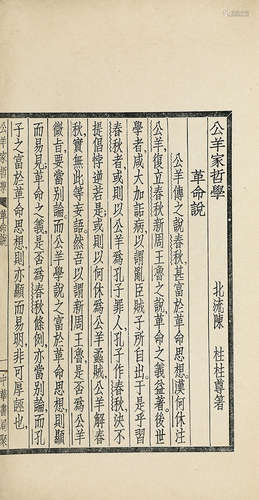 公羊家哲學
革命說
北流陳 柱柱尊著
公羊傳之說春秋甚富於革命思想漢何休注
公羊復立春秋新周王魯之說革命之義益著後世
學者咸大加詬病以謂亂臣賊子所自出于是乎習
春秋者或則以公羊爲孔子罪人孔子作春秋決不
提倡悖逆若是或則以何休爲公羊蟊賊公羊解春
秋實無此等妄語然吾以謂新周王魯是否爲公羊
微旨要當別論而公羊學說之富於革命思想則顯
而易見革命之義是否爲春秋條例亦當別論而孔
子之富於革命思想則亦顯而易明非可厚誣也
公羊家哲學 革命說
中華書局聚